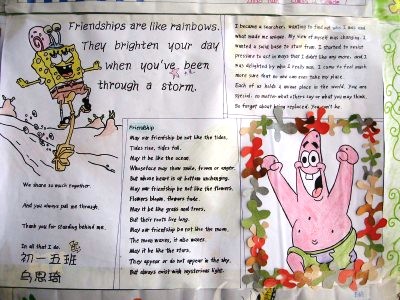 Friendships are like rainbows.
They brighten your day
when you've been
through a storm.
I became a searcher, wanting to find out who I was and
what made me unique. My view of myself was changing. I
wanted a solid base to start from. I started to resist
pressure to act in ways that I didn't like any more, and I
was delighted by who I really was. I came to feel much
more sure that no one can ever take my place.
Each of us holds a unique place in the world. You are
special, no matter what others say or what you may think.
So forget about being replaced. You can't be.
We share so much together.
And you always pull me through.
Thank you for standing behind me.
In all that I do.
初一五班
乌思琦
Friendship
May our friendship be not like the tides,
Tides rise, tides fall.
May it be like the ocean.
Whose face may show smile, frown or anger.
But whose heart is at bottom unchanging.
May our friendship be not like the flowers,
Flowers bloom, flowers fade.
May it be like grass and trees,
But their roots live long.
May our friendship be not like the moon,
The moon waxes, it also wanes.
May it be like the stars.
They appear or do not appear in the sky,
But always exist with mysterious light.